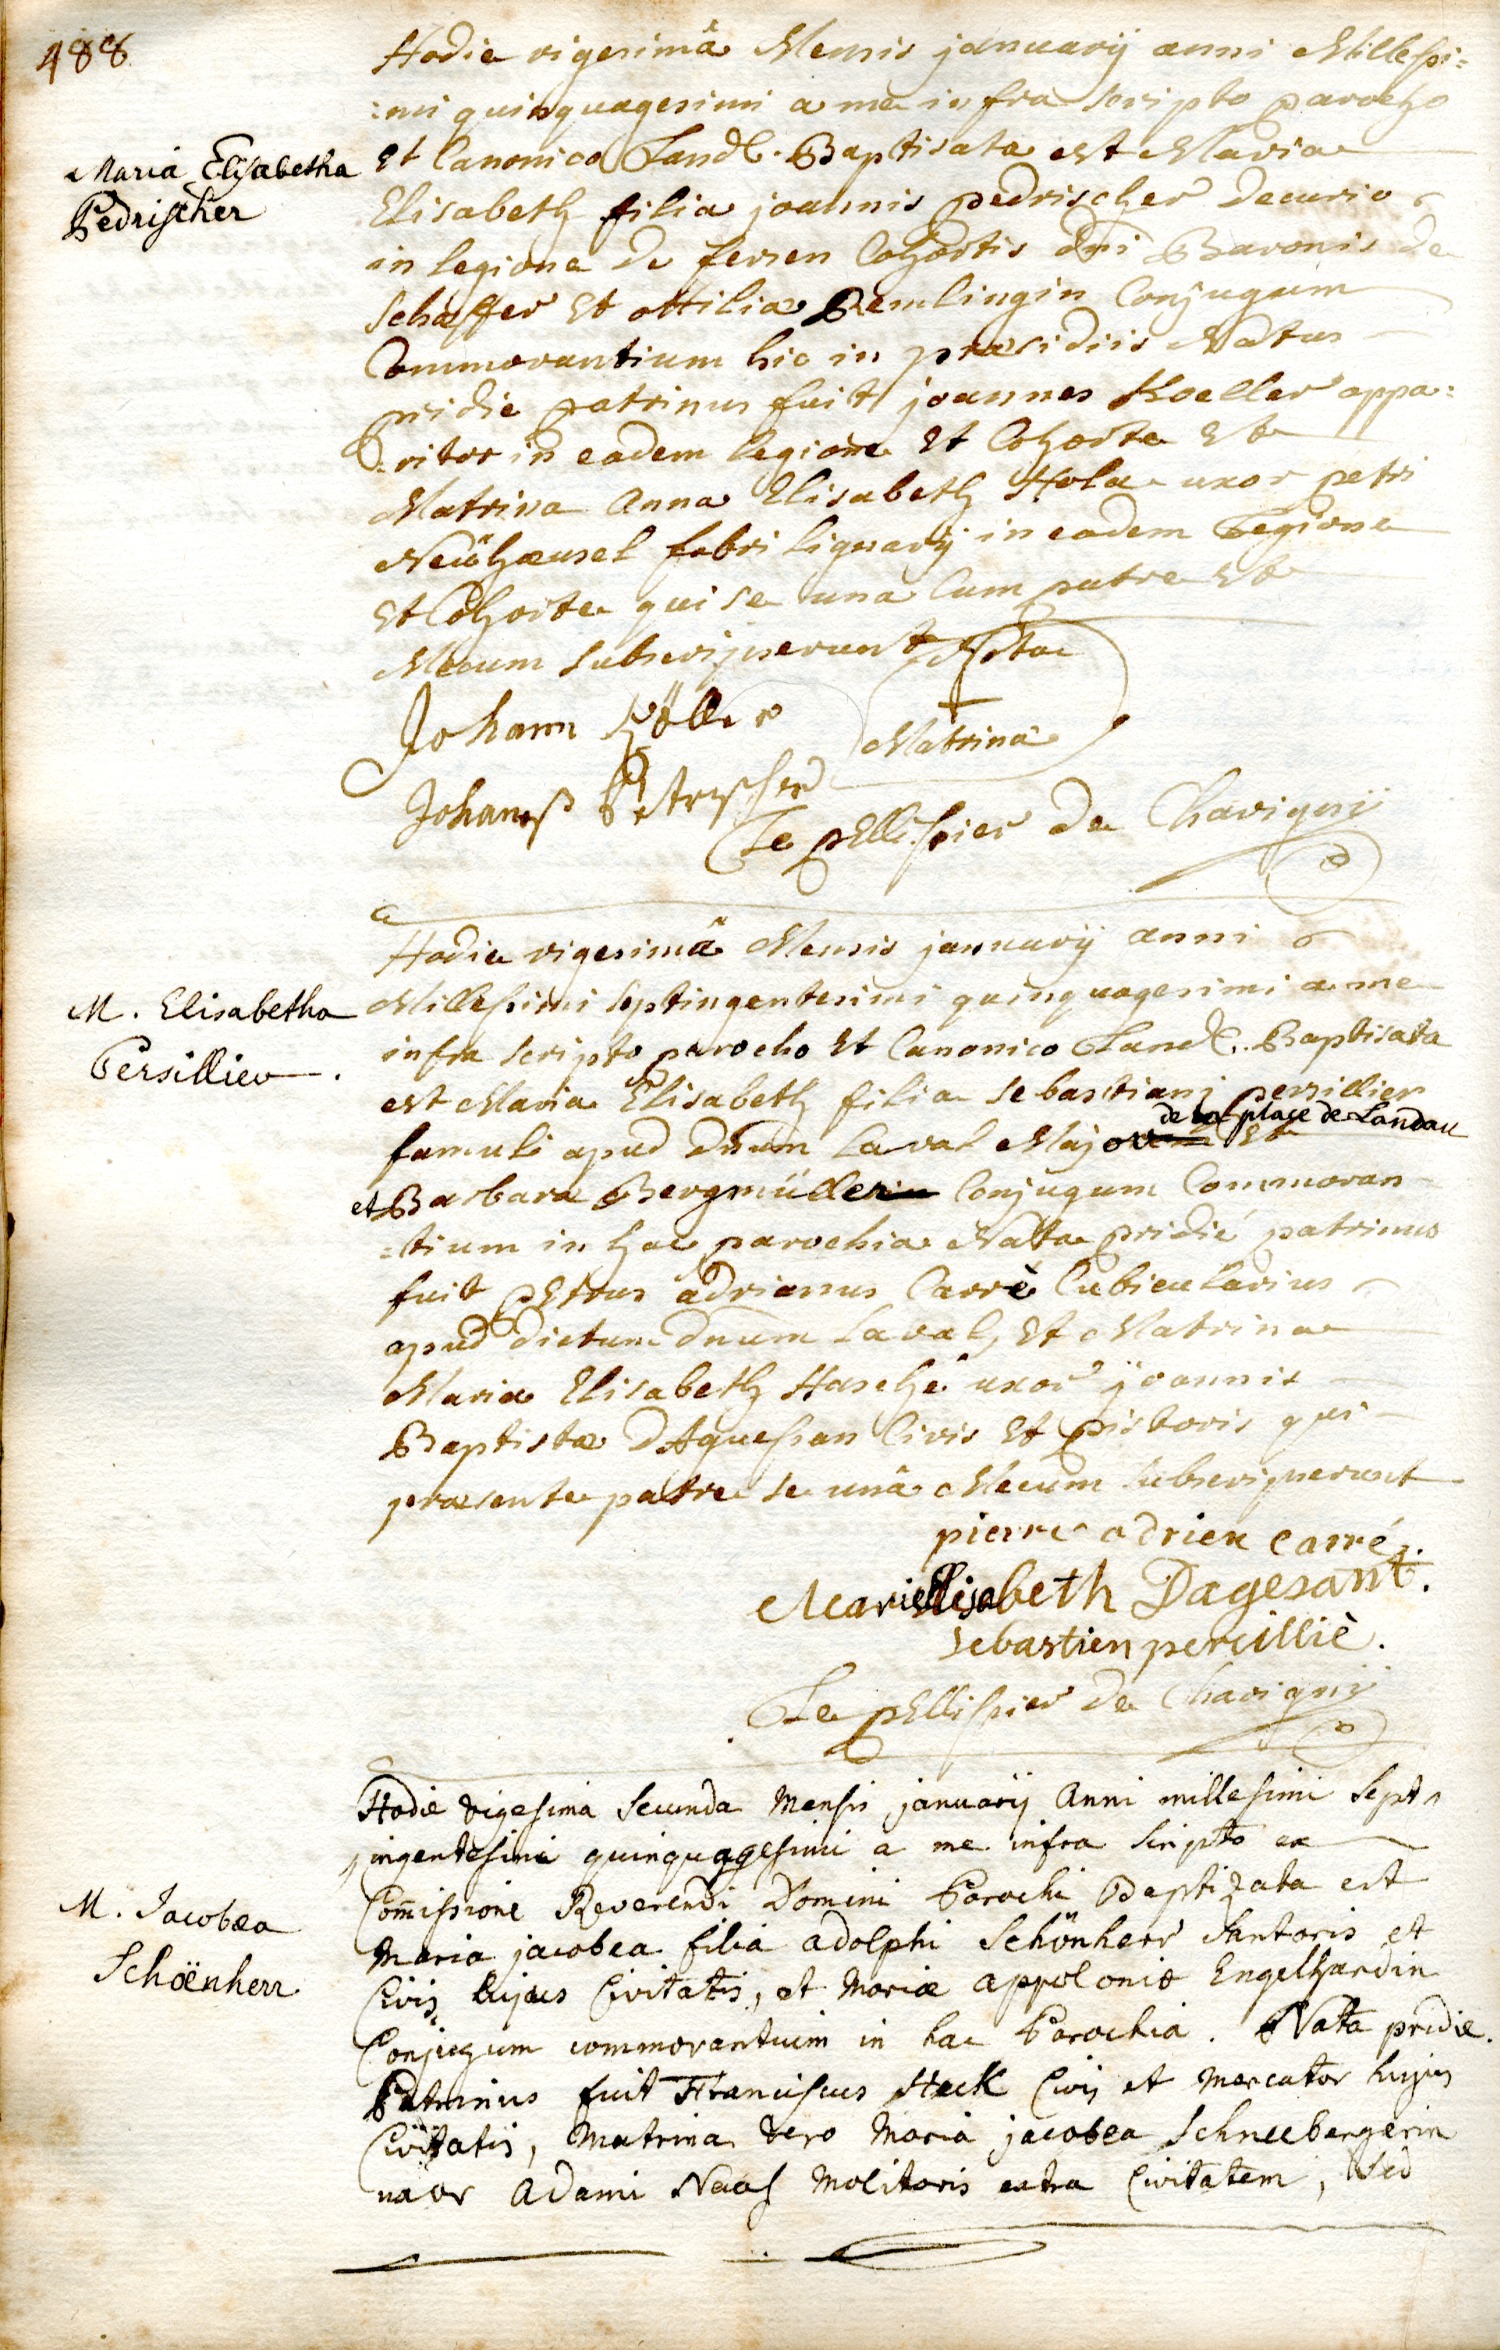 488
Hodie vigesimâ Mensis januarij anni Millessi=
=mi quinquagesimi a me infra scripto parocho
Maria Elisabetha
Pedrischer
Et Canonico Land. Baptisata est Maria
Elisabeth filia joannis pedrischer Decurio
in legione de fersen Cohortis dni Baronis de
Schaffer Et ottiliæ Remlingin Conjugum
Commorantium hic in præsidiis Natus
pridie patrinus fuit joannes Koeller appa=
=ritor in eadem legione Et Cohorte Et
Matrina Anna Elisabeth Hola uxor petri
Neühæusel fabri lignarij in eadem Legione
Et Cohorte qui se una Cum patre Et
Mecum subscripserunt Nota
Johann Köller
+
Matrina
Johanneß Petrischer
Le pellissier de Chavignÿ
Hodie vigesimâ Mensis januarij anni
M. Elisabetha
Persillier.
Millessimi septingentesimi quinquagesimi a me
infra scripto parocho Et Canonico Land. Baptisata
est Maria Elisabeth filia sebastiani persillier
de la place de Landau
famuli apud Dnum Laval Majorem Et
et Barbara Bergmüllerin Conjugum Commoran
=tium in hac parochia Nata pridie patrinus
fuit pEtrus adrianus Carrè Cubicularius
apud dictum Dnum Laval, Et Matrina
Maria Elisabeth Haschè uxor joannis
Baptistæ DAguessan Civis Et pistoris qui
præsente patre se unâ Mecum subscripserunt
pierre adrien carré.
Marie Elisabeth Dagesant.
sebastien percilliè.
Le pEllissier de Chavignÿ
Hodie vigesima secunda Mensis januarij Anni millesimi Sept
ingentesimi quinquagesimi a me infra scripto ex
M. Jacobea
Schöenherr
Com̄issione Reverendi Domini Parochi Baptizata est
Maria jacobea filia adolphi Schönherr Santoris et
Civis hujus Civitatis, et Mariæ appoloniæ Engelhardin
Conjugum commorantium in hac Parochia. Nata pridie.
Patrinus fuit Franciscus Heck Civis et Mercator hujus
Civitatis, Matrina vero Maria jacobea Schneebergerin
uxor Adami Naas Molitoris extra Civitatem, Sed